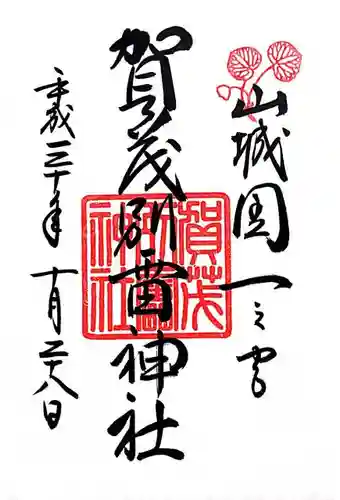 山城国一之宮
賀茂別雷神社
平成三十年十月二十八日
賀茂別雷神社